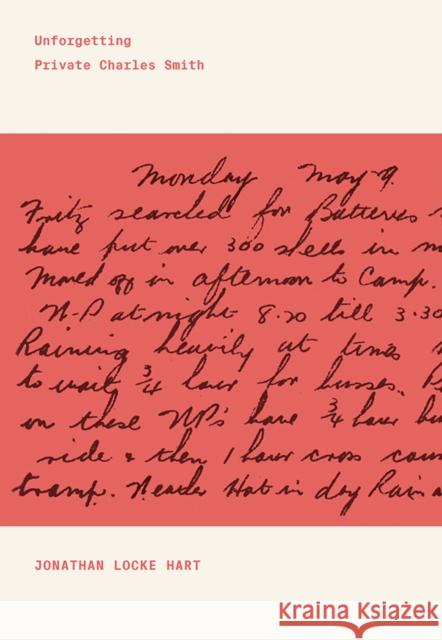 Unforgetting
Private Charles Smith
Monday May 9.
Fritz searched for Batteries
have put over 300 shells in
Moved off in afternoon to Camp.
W-P at night 8.20 till 3.30
Raining heavily at times
to wait 3/4 hour for busses.
on these WP's have 3/4 hour
ride & then 1 hour cross
tramp. Weather Hot in day Rain
JONATHAN LOCKE HART
krainaksiazek.pl